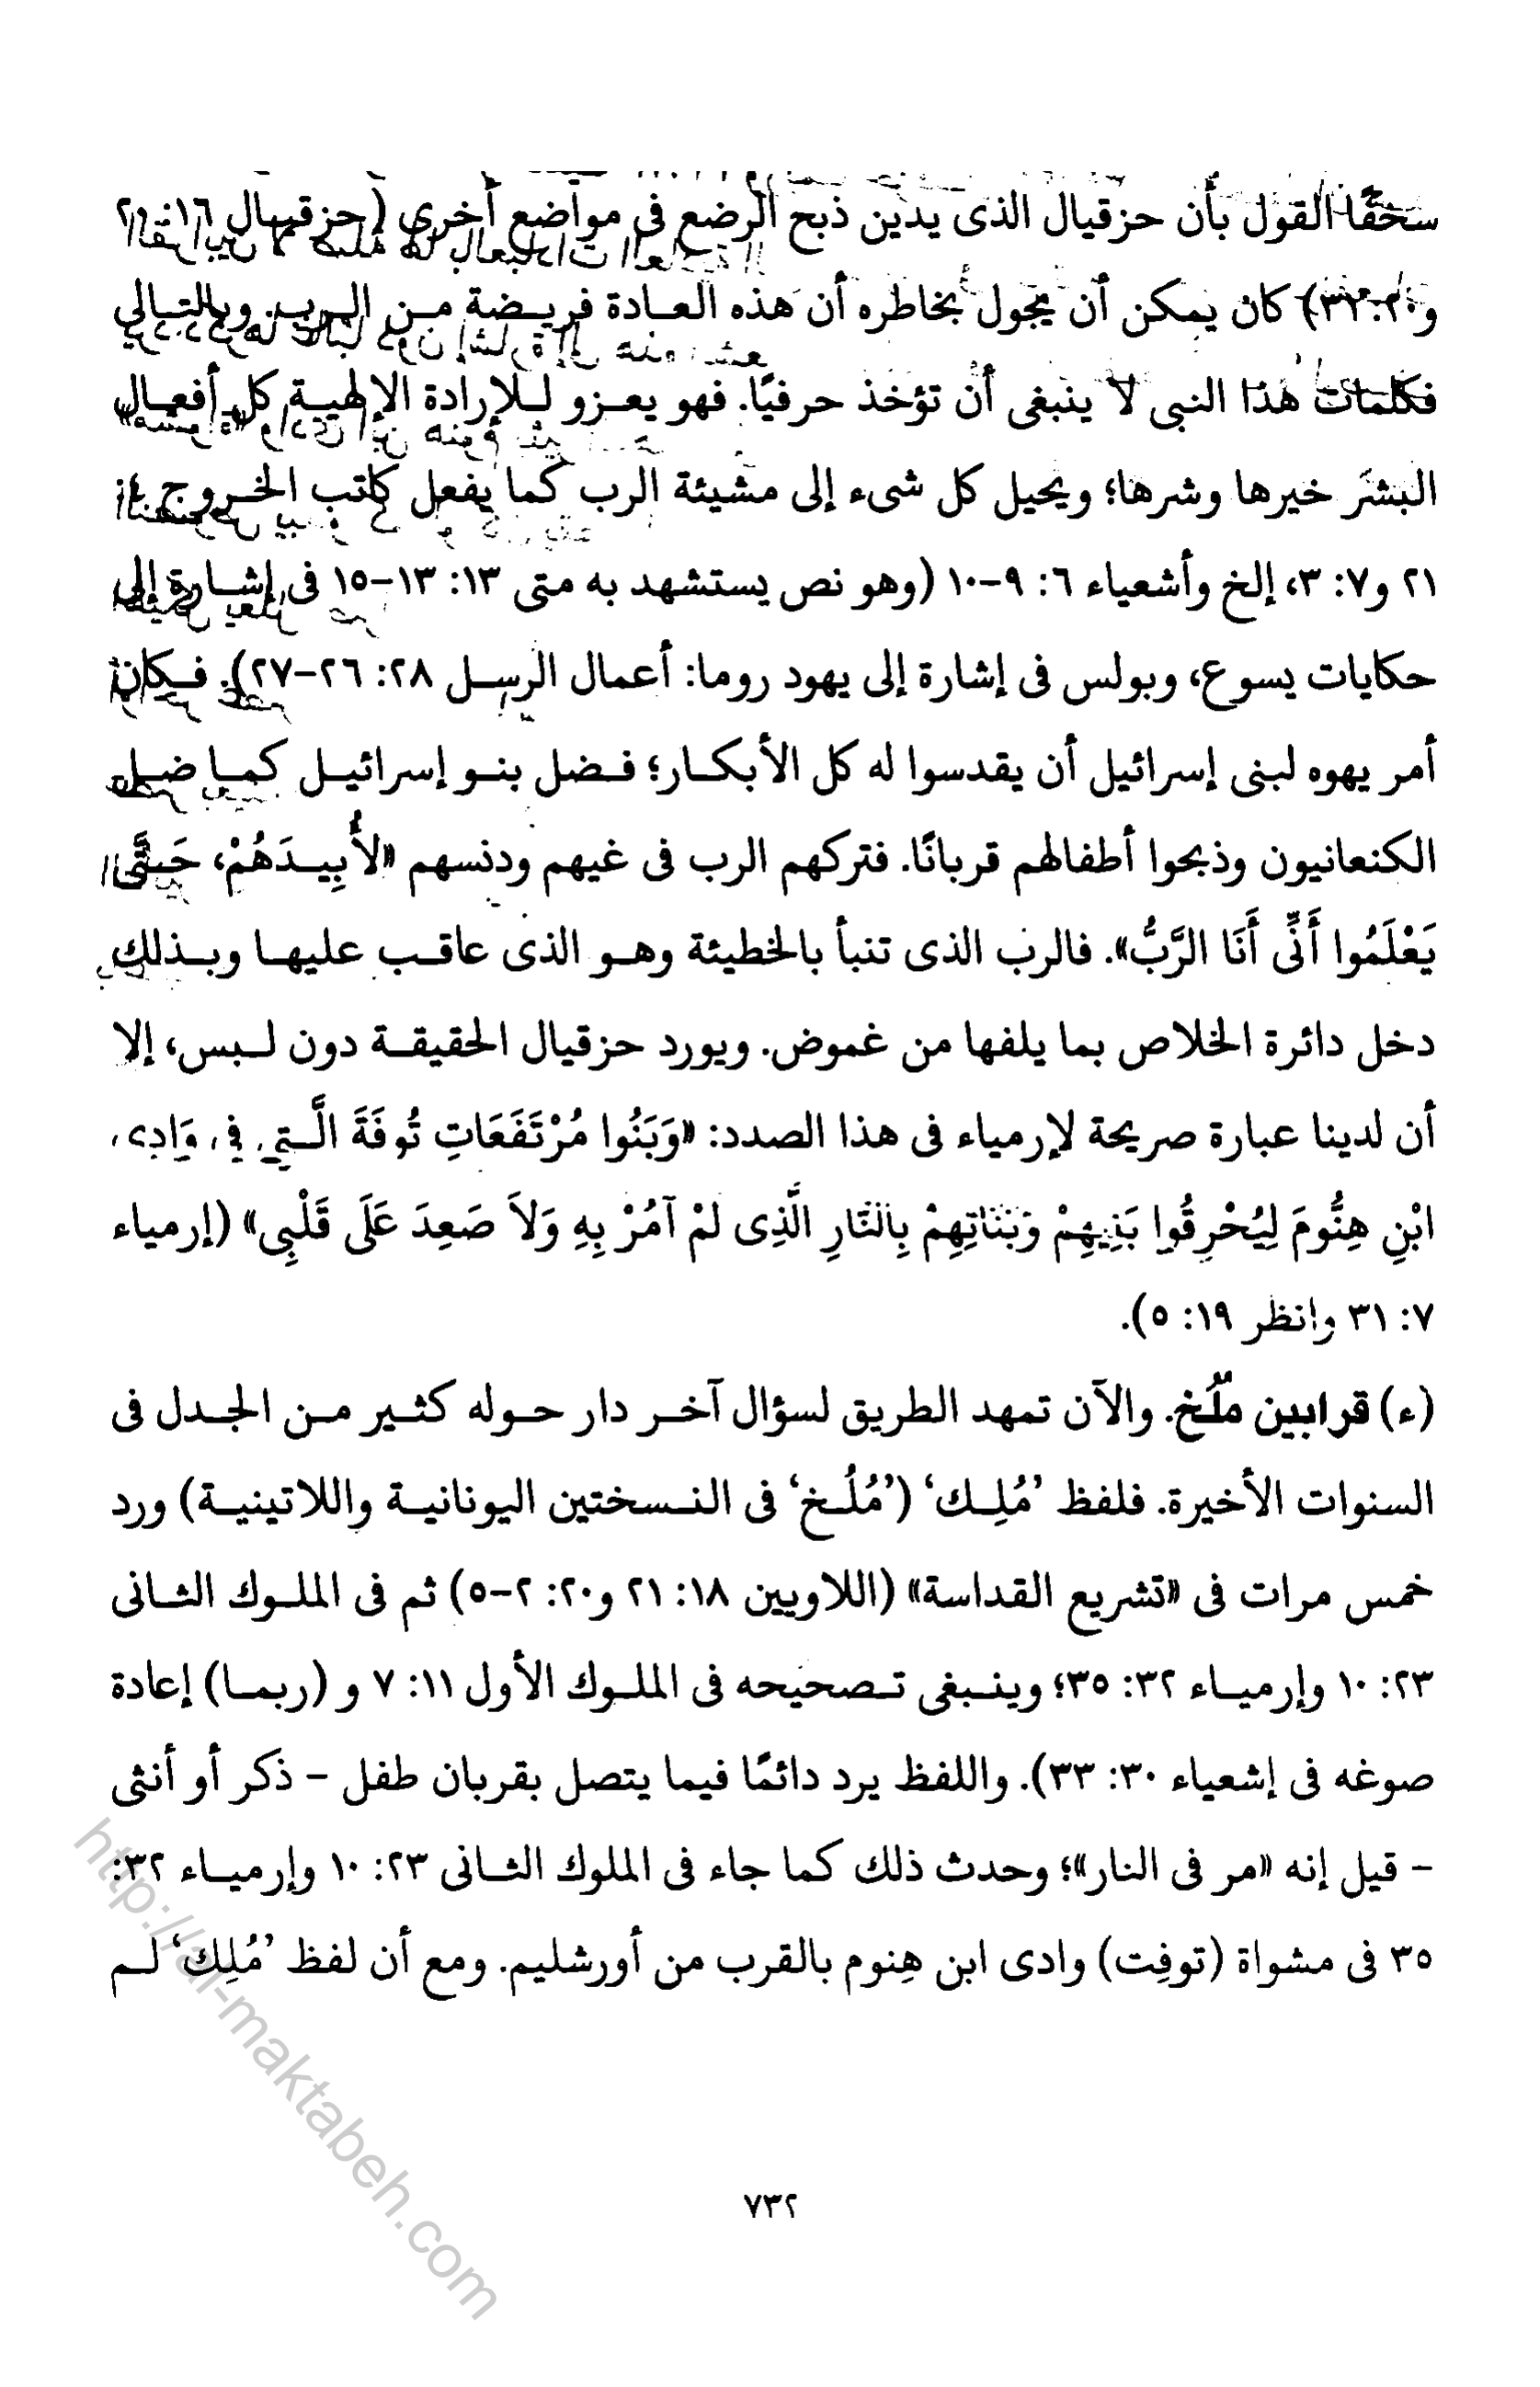 سخفًا القول بأن حزقيال الذى يدين ذبح الرضع فى مواضع أخرى (حزقيال ١٦: ٢٠
و٢٠: ٣١) كان يمكن أن يجول بخاطره أن هذه العادة فريضة من الرب. وبالتالى
فكلمات هذا النبى لا ينبغى أن تؤخذ حرفيًا. فهو يعزو للإرادة الإلهية كل أفعال
البشر خيرها وشرها؛ ويحيل كل شىء إلى مشيئة الرب كما يفعل كاتب الخروج ٤:
٢١ و٧: ٣، إلخ وأشعياء ٦: ٩-١٠ (وهو نص يستشهد به متى ١٣: ١٣-١٥ فى إشارة إلى
حكايات يسوع، وبولس فى إشارة إلى يهود روما: أعمال الرسل ٢٨: ٢٦-٢٧). فكان
أمر يهوه لبنى إسرائيل أن يقدسوا له كل الأبكار؛ فضل بنو إسرائيل كما ضل
الكنعانيون وذبحوا أطفالهم قربانًا. فتركهم الرب فى غيهم ودنسهم «لأُبِيدَهُمْ، حَتَّى
يَعْلَمُوا أَنِّى أَنَا الرَّبُّ». فالرب الذى تنبأ بالخطيئة وهو الذى عاقب عليها وبذلك
دخل دائرة الخلاص بما يلفها من غموض. ويورد حزقيال الحقيقة دون لبس، إلا
أن لدينا عبارة صريحة لإرمياء فى هذا الصدد: «وَبَنُوا مُرْتَفَعَاتِ تُوفَةَ الَّتِى فِى وَادِى
ابْنِ هِنُّومَ لِيُحْرِقُوا بَنِيهِمْ وَبَنَاتِهِمْ بِالنَّارِ الَّذِى لَمْ آمُرْ بِهِ وَلاَ صَعِدَ عَلَى قَلْبِى» (إرمياء
٧: ٣١ وانظر ١٩: ٥).
(ء) قرابين مُلَّخ. والآن تمهد الطريق لسؤال آخر دار حوله كثير من الجدل فى
السنوات الأخيرة. فلفظ ’مُلِك‘ (’مُلُخ‘ فى النسختين اليونانية واللاتينية) ورد
خمس مرات فى «تشريع القداسة» (اللاويين ١٨: ٢١ و٢٠: ٢-٥) ثم فى الملوك الثانى
٢٣: ١٠ وإرمياء ٣٢: ٣٥؛ وينبغى تصحيحه فى الملوك الأول ١١: ٧ و (ربما) إعادة
صوغه فى إشعياء ٣٠: ٣٣). واللفظ يرد دائمًا فيما يتصل بقربان طفل - ذكر أو أنثى
- قيل إنه «مر فى النار»؛ وحدث ذلك كما جاء فى الملوك الثانى ٢٣: ١٠ وإرمياء ٣٢:
٣٥ فى مشواة (توفِت) وادى ابن هِنوم بالقرب من أورشليم. ومع أن لفظ ’مُلِك‘ لم
٧٣٢
http://al-maktabeh.com